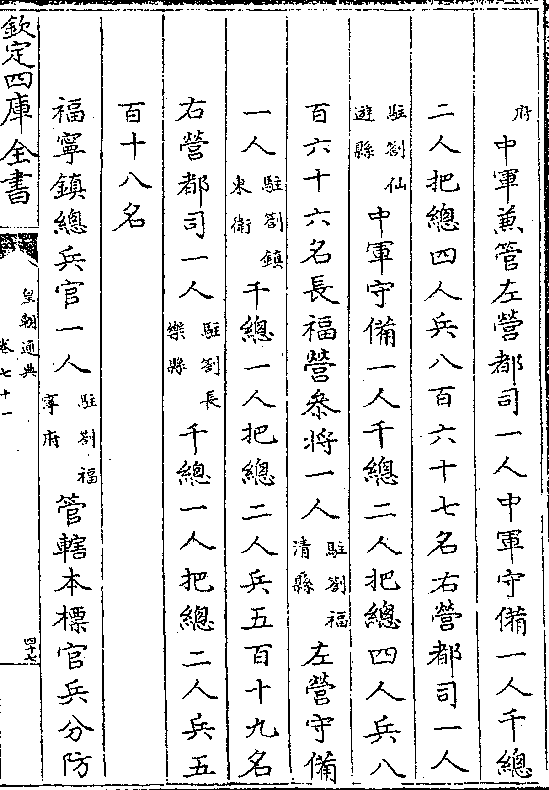 府中軍兼管左營都司一人中軍守備一人千總
二人把總四人兵八百六十七名右營都司一人
駐劄仙遊縣中軍守備一人千總二人把總四人兵八
百六十六名長福營叅將一人駐劄福清縣左營守備
一人駐劄鎮東衛千總一人把總二人兵五百十九名
右營都司一人駐劄長樂縣千總一人把總二人兵五
百十八名
福寧鎮總兵官一人駐劄福寧府管轄本標官兵分防
欽定四庫全書
皇朝通典
卷七十一
四十七